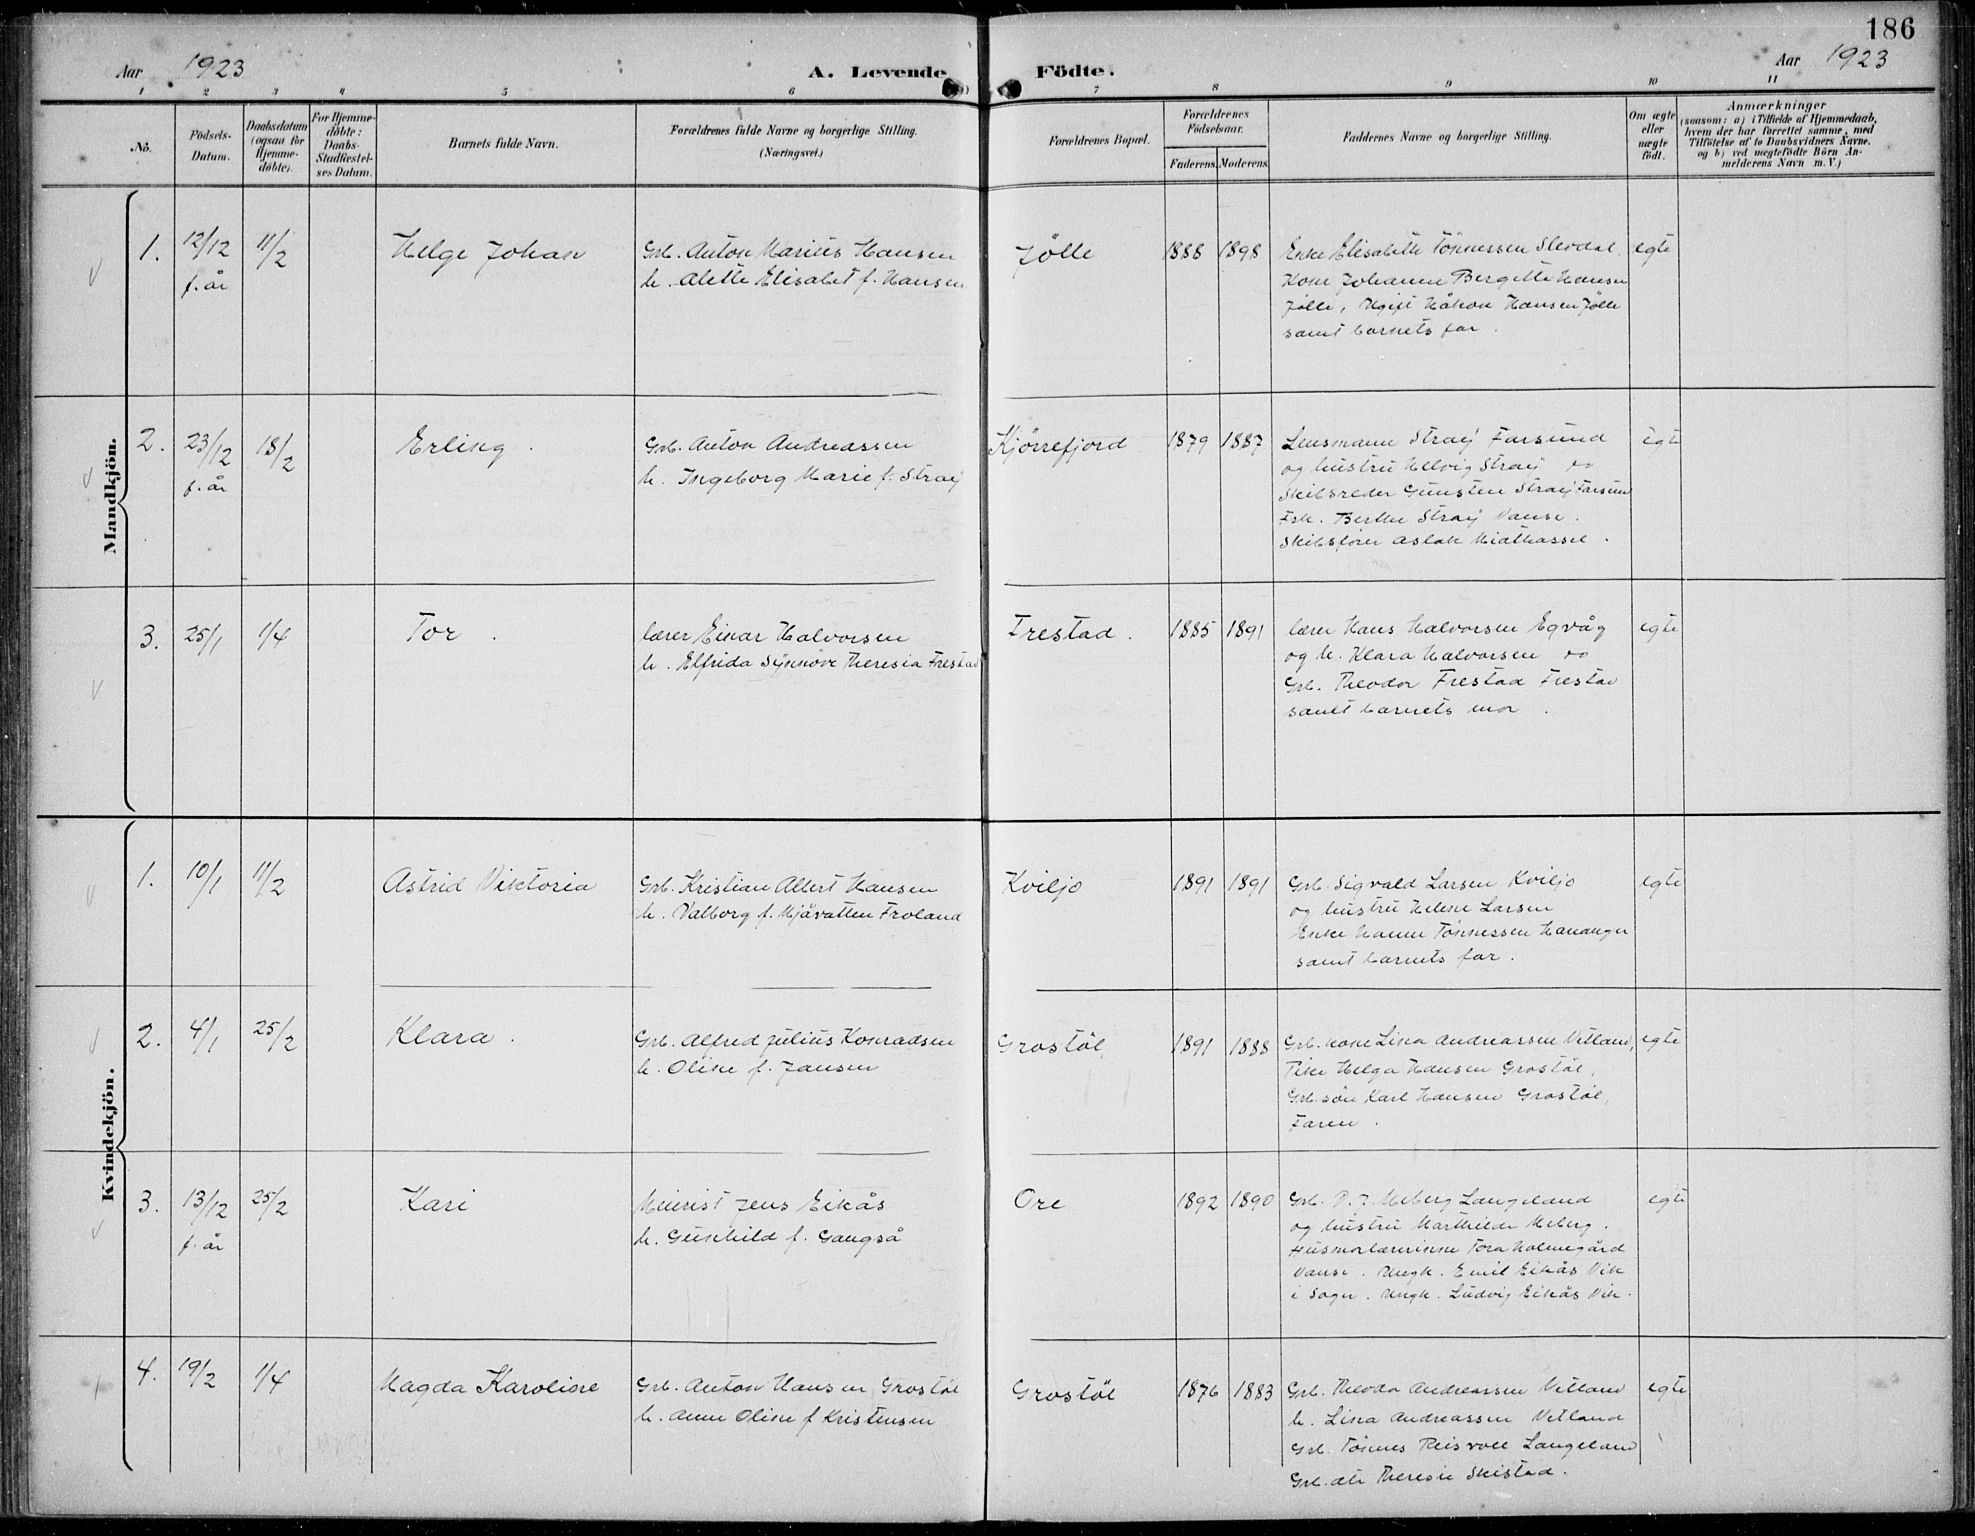 186
Aar 1923 A. Levende Födte. Aar 1923
1 2 3 4 5 6 7 8 9 10 11
No.
Födsels-
Datum.
Daabsdatum
(ogsaa for
Hjemme-
döbte).
For Hjemme-
döbte:
Daabs-
Stadfæstel-
ses Datum.
Barnets fulde Navn.
Forældrenes fulde Navne og borgerlige Stilling.
(Næringsvei.)
Forældrenes Bopæl.
Forældrenes
Födselsaar.
Faderens. Moderens.
Faddernes Navne og borgerlige Stilling.
Om ægte
eller
uægte
födt.
Anmærkninger
(saasom: a) i Tilfælde af Hjemmedaab,
hvem der har forrettet samme, med
Tilföielse af to Daabsvidners Navne.
og b) ved uægtefödte Börn An-
melderens Navn m. V.)
Mandkjön.
1. 12/12 f. år 11/2 Helge Johan
Grb. Anton Marius Hansen
h. Alette Elisabet f. Hansen
Jölle 1888 1898
Enke Elisabeth Tönnessen Slevdal,
Kone Johanne Bergitte Hansen
Jölle, Ugift Håkon Hansen Jölle
samt barnets far.
egte
2. 23/12 f. år 18/2 Erling.
Grb. Anton Andreassen
h. Ingeborg Marie f. Straÿ
Kjörrefjord 1879 1887
Lensmann Straÿ Farsund
og hustru Helvig Straÿ do
Skibsreder Gunsten Straÿ Farsun
Frk. Berthe Straÿ Vanse.
Skibsförer Aslak Midthassel.
egte
3. 25/1 1/4 Tor.
lærer Einar Halvorsen
h. Elfrida Synnöve Theresia Frestad
Frestad. 1885 1891
lærer Hans Halvorsen Egvåg
og h. Klara Halvorsen do
Grb. Theodor Frestad Frestad
samt barnets mor.
egte
Kvindekjön.
1. 10/1 11/2 Astrid Viktoria
Grb. Kristian Albert Hansen
h. Valborg f. Mjåvatten Froland
Kviljo 1891 1891
Grb. Sigvald Larsen Kviljo
og hustru Helene Larsen
Enke Hanne Tönnessen Hananger
samt barnets far.
egte
2. 4/1 25/2 Klara.
Grb. Alfred Julius Konradsen
h. Oline f. Jansen
Grostöl, 1891 1888
Grb. kone Lina Andreassen Vetland,
Pike Helga Hansen Grostöl,
Grb. sön Karl Hansen Grostöl,
Faren.
egte
3. 13/12 f. år 25/2 Kari
Meierist Jens Eikås
h. Gunhild f. Gangså
Ore 1892 1890
Grb. P. J. Meberg Langeland
og hustru Marthilde Meberg.
Husmorlærerinne Tora Holmegård
Vanse. Ungk. Emil Eikås Vik
i Sogn. Ungk. Ludvig Eikås Vik.
egte
4. 19/2 1/4 Magda Karoline
Grb. Anton Hansen Grostöl
h. Anne Oline f Kristensen
Grostöl 1876 1883
Grb. Theodor Andreassen Vetland
h. Lina Andreassen Vetland
Grb. Tönnes Reisvoll Langeland
Grb. dtr Theresie Skistad.
egte